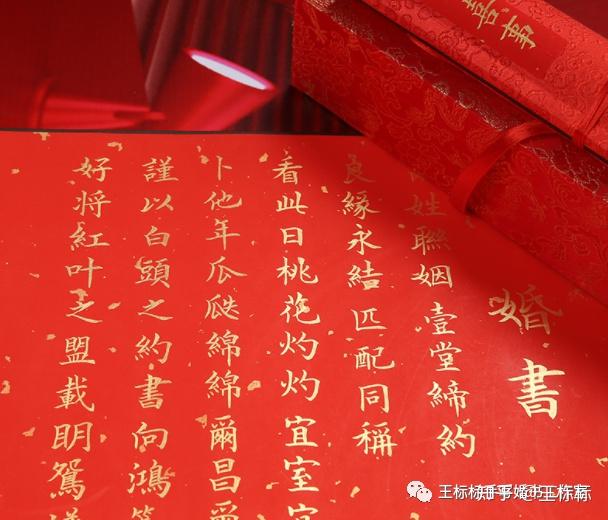 婚書
姓聯姻壹堂締約
良緣永結匹配同稱
看此日桃花灼灼宜室宜
卜他年瓜瓞綿綿爾昌爾
謹以白頭之約書向鴻箋
好將紅叶之盟載明鴛
喜事